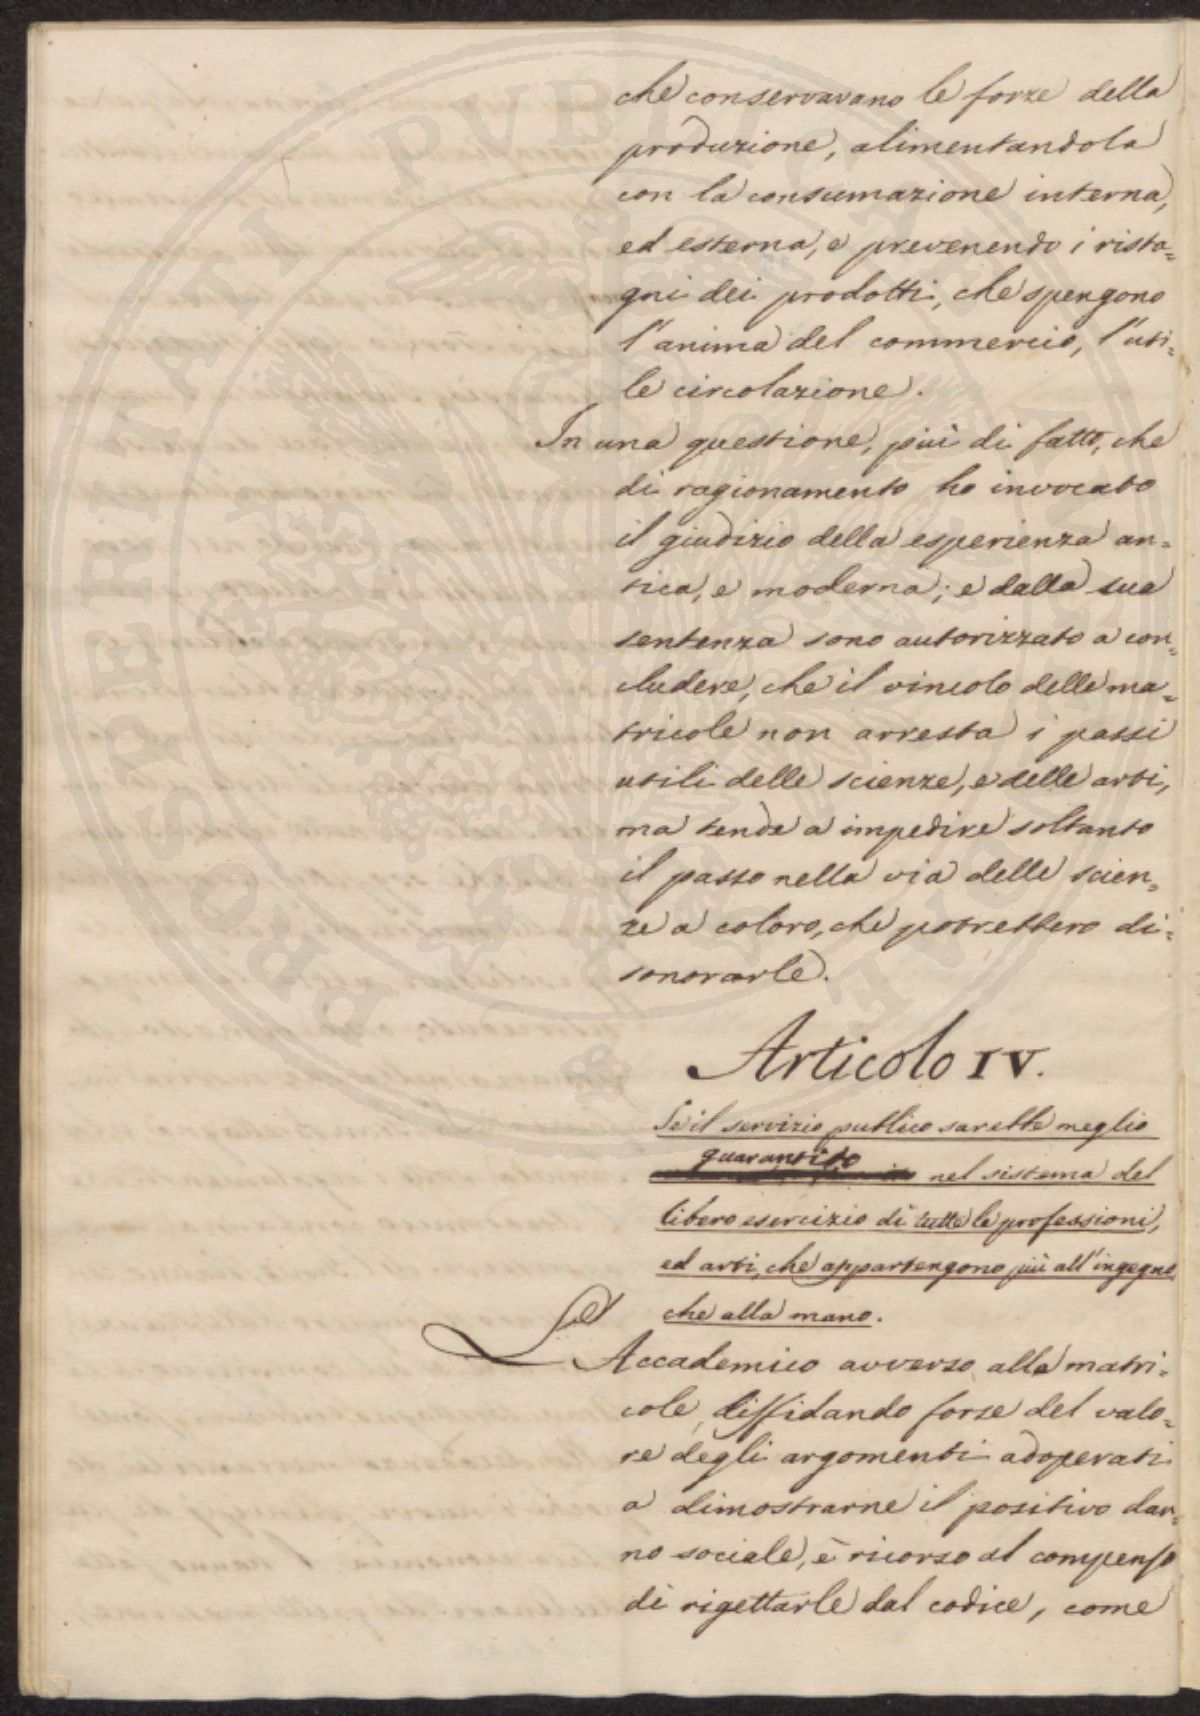 che conservavano le forze della
produzione, alimentandola
con la consumazione interna,
ed esterna, e prevenendo i rista=
gni dei prodotti, che spengono
l'anima del commercio, l'uti=
le circolazione.
In una questione, più di fatto, che
di ragionamento ho invocato
il giudizio della esperienza an=
tica, e moderna; e dalla sua
sentenza sono autorizzato a con=
cludere, che il vincolo delle ma=
tricole non arresta i passi
utili delle scienze, e delle arti,
ma tende a impedire soltanto
il passo nella via delle scien=
ze a coloro, che potrebbero di=
sonorarle.
Articolo IV.
Se il servizio publico sarebbe meglio
guarantito
nel sistema del
libero esercizio di tutte le professioni,
ed arti, che appartengono più all'ingegno
che alla mano.
L'Accademico avverso alle matri=
cole, diffidando forse del valo=
re degli argomenti adoperati
a dimostrarne il positivo dan=
no sociale, è ricorso al compenso
di rigettarle dal codice, come
PROSPERITATI PUBLICAE AUGENDAE